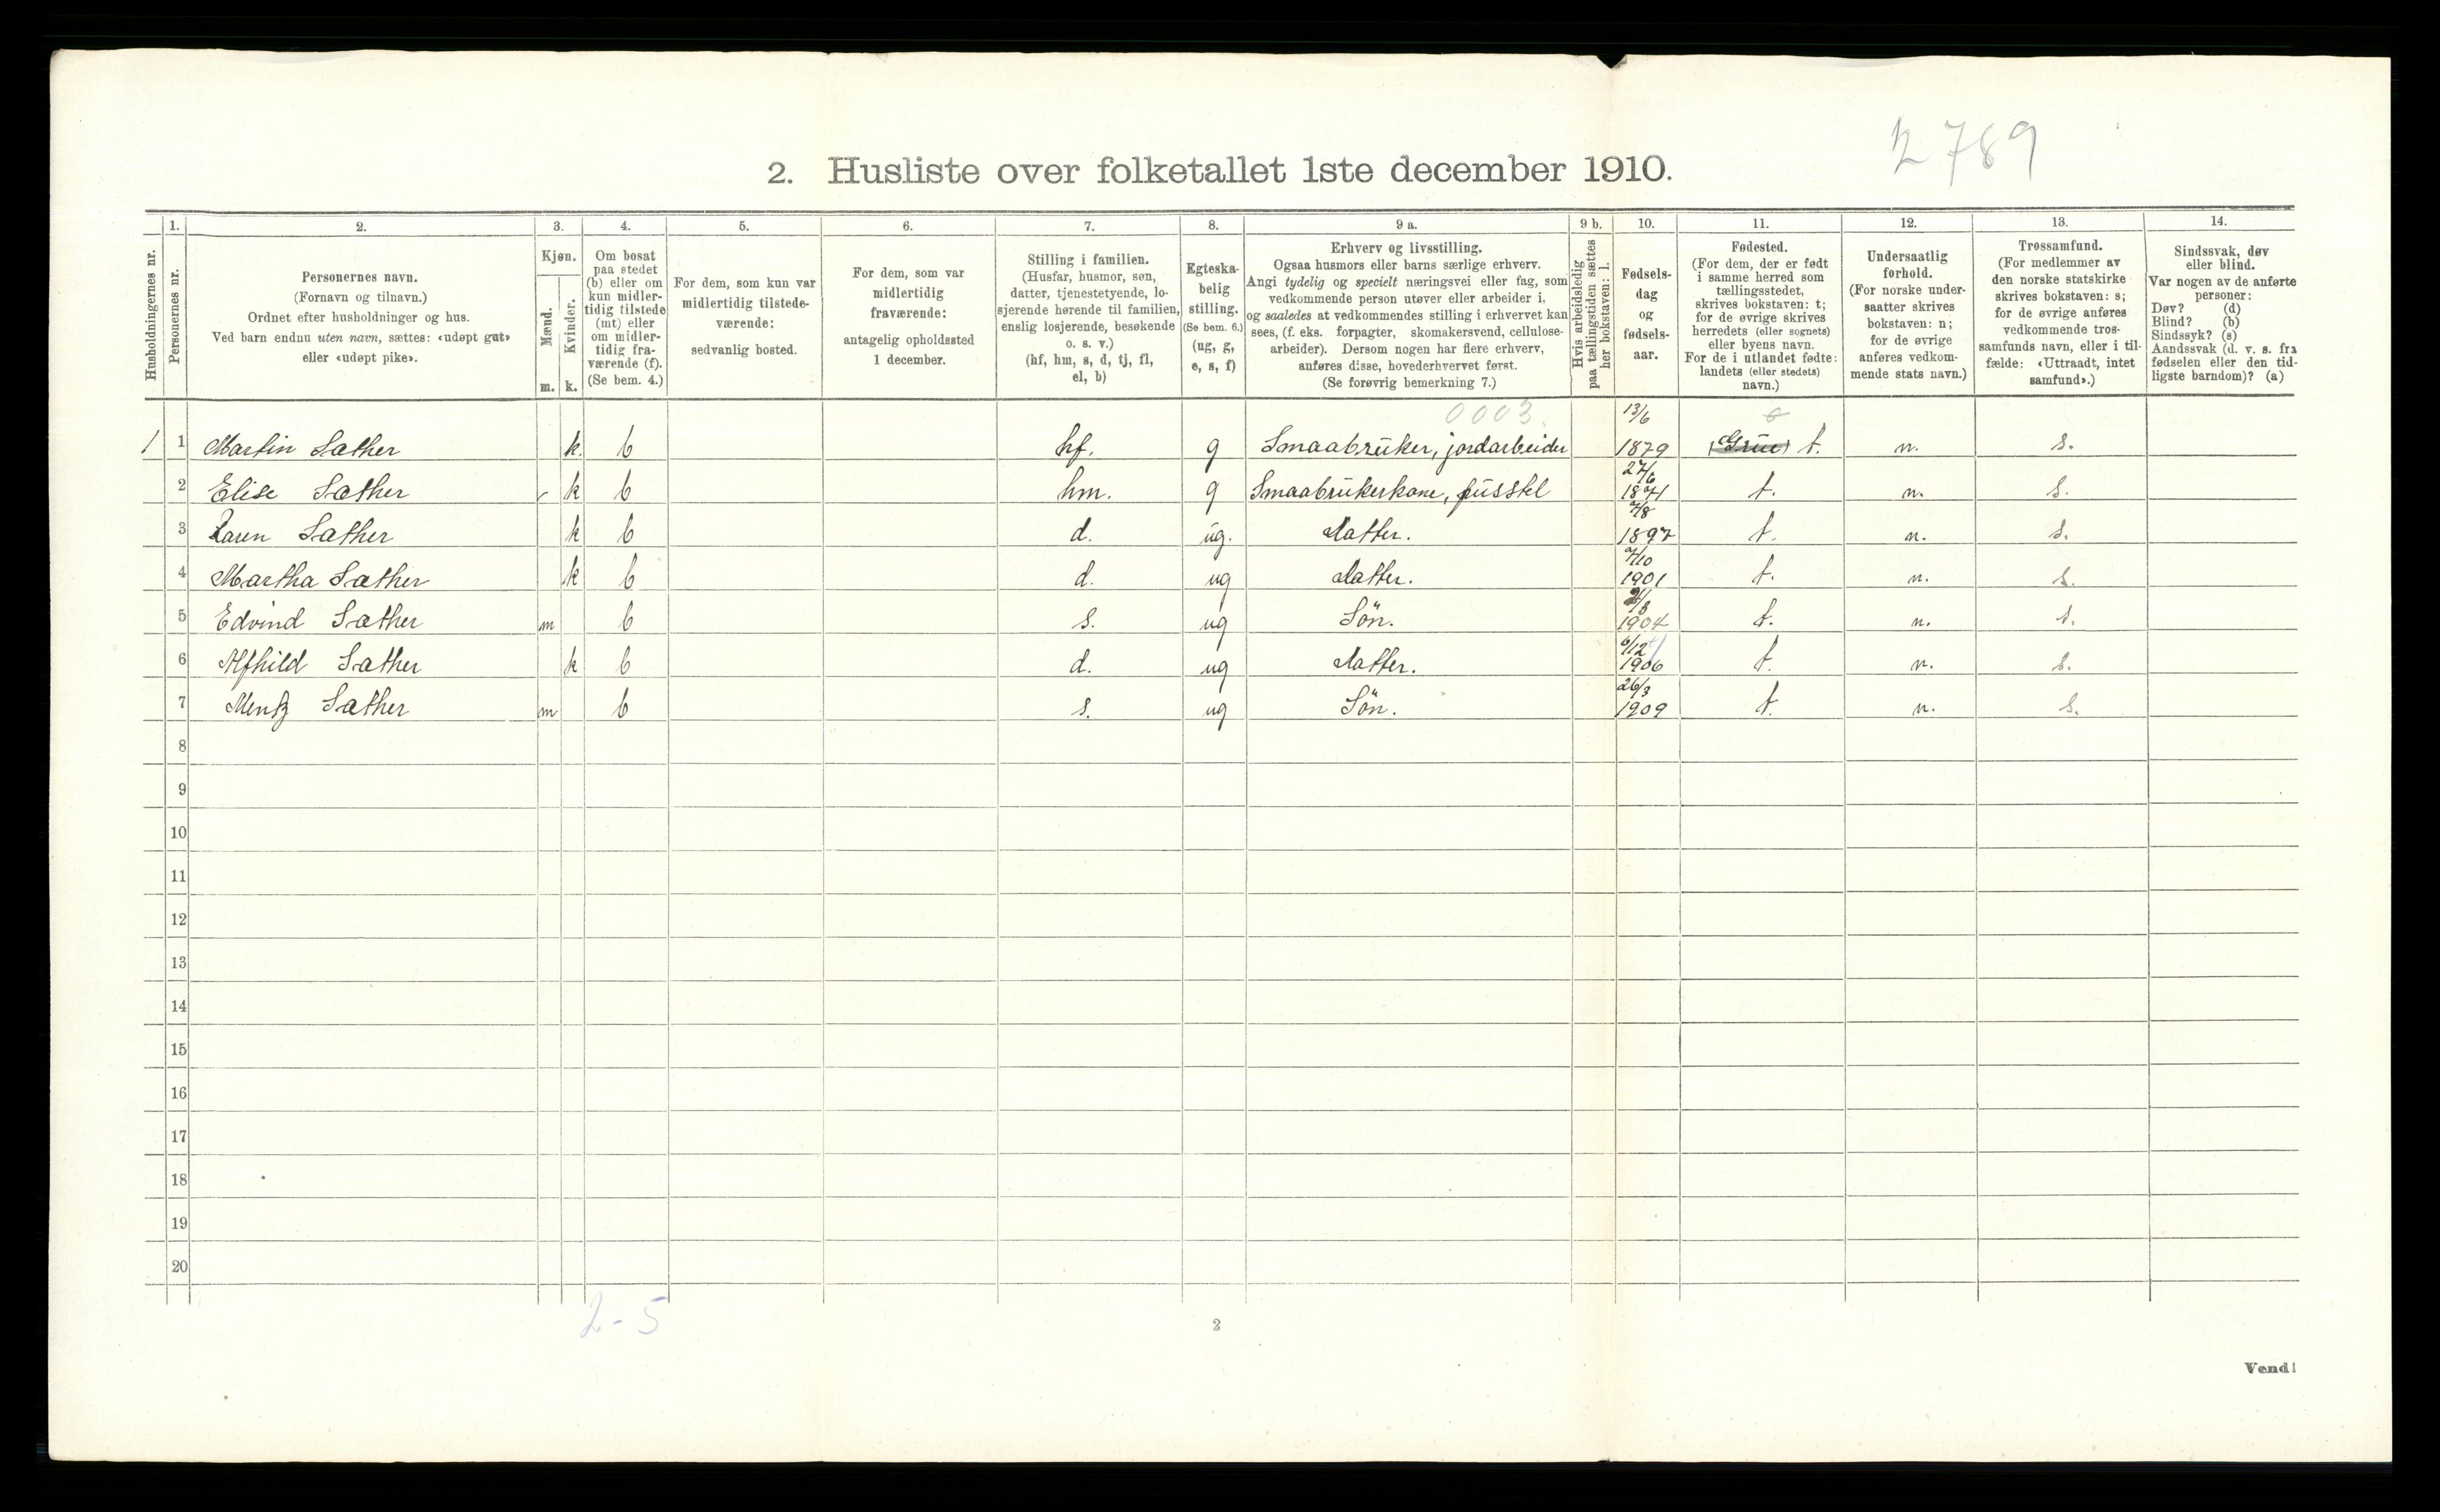 2789
2. Husliste over folketallet 1ste december 1910.
1. 2. 3. 4. 5. 6. 7. 8. 9 a. 9 b. 10. 11. 12. 13. 14.
Husholdningernes nr.
Personernes nr.
Personernes navn.
(Fornavn og tilnavn.)
Ordnet efter husholdninger og hus.
Ved barn endnu uten navn, sættes: «udøpt gut»
eller «udøpt pike».
Kjøn.
Mænd.
m.
Kvinder.
k.
Om bosat
paa stedet
(b) eller om
kun midler-
tidig tilstede
(mt) eller
om midler-
tidig fra-
værende (f).
(Se bem. 4.)
For dem, som kun var
midlertidig tilstede-
værende:
sedvanlig bosted.
For dem, som var
midlertidig
fraværende:
antagelig opholdssted
1 december.
Stilling i familien.
(Husfar, husmor, søn,
datter, tjenestetyende, lo-
sjerende hørende til familien,
enslig losjerende, besøkende
o. s. v.)
(hf, hm, s, d, tj, fl,
el, b)
Egteska-
belig
stilling.
(Se bem. 6.)
(ug, g,
e, s, f)
Erhverv og livsstilling.
Ogsaa husmors eller barns særlige erhverv.
Angi tydelig og specielt næringsvei eller fag, som
vedkommende person utøver eller arbeider i,
og saaledes at vedkommendes stilling i erhvervet kan
sees, (f. eks. forpagter, skomakersvend, cellulose-
arbeider). Dersom nogen har flere erhverv,
anføres disse, hovederhvervet først.
(Se forøvrig bemerkning 7.)
Hvis arbeidsledig
paa tællingstiden sættes
her bokstaven: l.
Fødsels-
dag
og
fødsels-
aar.
Fødested.
(For dem, der er født
i samme herred som
tællingsstedet,
skrives bokstaven: t;
for de øvrige skrives
herredets (eller sognets)
eller byens navn.
For de i utlandet fødte:
landets (eller stedets)
navn.)
Undersaatlig
forhold.
(For norske under-
saatter skrives
bokstaven: n;
for de øvrige
anføres vedkom-
mende stats navn.)
Trossamfund.
(For medlemmer av
den norske statskirke
skrives bokstaven: s;
for de øvrige anføres
vedkommende tros-
samfunds navn, eller i til-
fælde: «Uttraadt, intet
samfund».)
Sindssvak, døv
eller blind.
Var nogen av de anførte
personer:
Døv? (d)
Blind? (b)
Sindssyk? (s)
Aandssvak (d. v. s. fra
fødselen eller den tid-
ligste barndom)? (a)
0003. 13/6
1 1 Martin Sæther k. b hf. g Smaabruker, jordarbeider 1879 Grue t. n. s.
27/6
2 Elise Sæther k b hm. g Smaabrukerkone, fusstel 1871 t. n. s.
3 Karen Sæther k b d. ug. datter. 1897 t. n. s.
4 Martha Sæther k b d. ug datter. 1901 t. n. s.
5 Edvind Sæther m b s. ug Sön. 1904 t. n. s.
6/12
6 Alfhild Sæther k b d. ug datter. 1906 t. n. s.
26/3
7 Mentz Sæther m b s. ug Sön. 1909 t. n. s.
8
9
10
11
12
13
14
15
16
17
18
19
20
2-5
2
Vend!